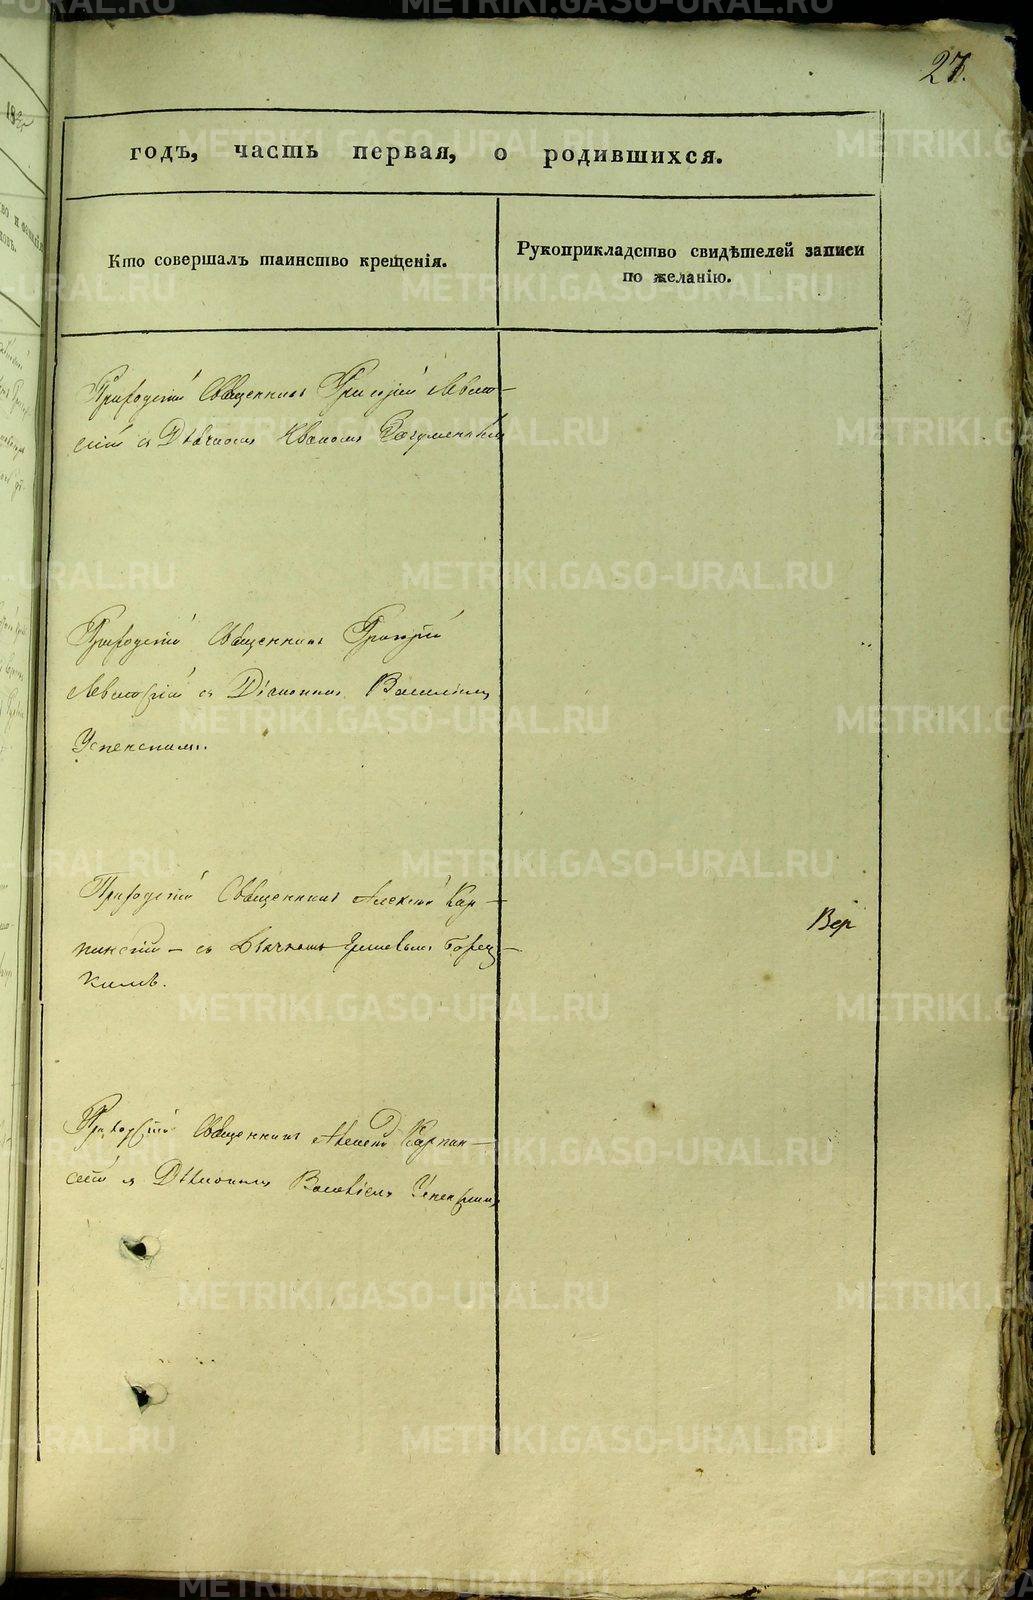 27.
годъ, часть первая, о родившихся.
Кто совершалъ таинство крещенія.
Рукоприкладство свидѣтелей записи
по желанію.
Приходскій Священникъ Григорій Левит-
скій съ Дьячкомъ Иваномъ
Приходскій Священникъ Григорій
Левитскій съ Діакономъ Василіемъ
Успенскимъ.
Приходскій Священникъ Алексѣй Кар-
пинскій - съ Дьячкомъ
кимъ.
Вер
Приходскій Священникъ Алексѣй Карпин-
скій съ Діакономъ Василіемъ Успенскимъ
METRIKI.GASO-URAL.RU